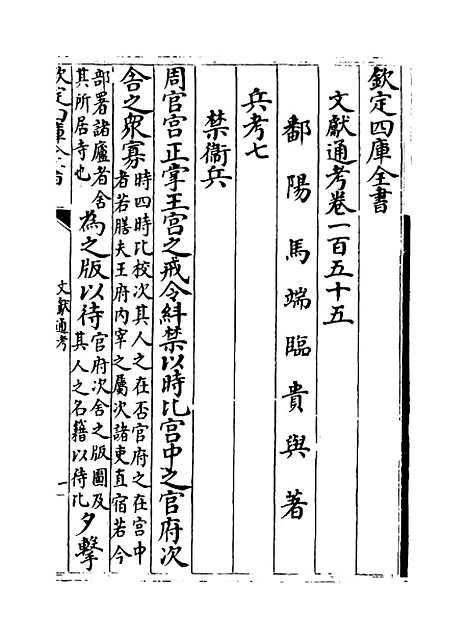 欽定四庫全書
文獻通考卷一百五十五
鄱陽馬端臨貴與著
兵考七
禁衞兵
周官宫正掌王宫之戒令糾禁以時比宫中之官府次
舍之衆寡時四時比校次其人之在否官府之在宫中
者若膳夫王府内宰之屬次諸吏直宿若今
部署諸廬者舍
其所居寺也為之版以待官府次舍之版圖及
其人之名籍以待比夕擊
欽定四庫全書
文獻通考
一